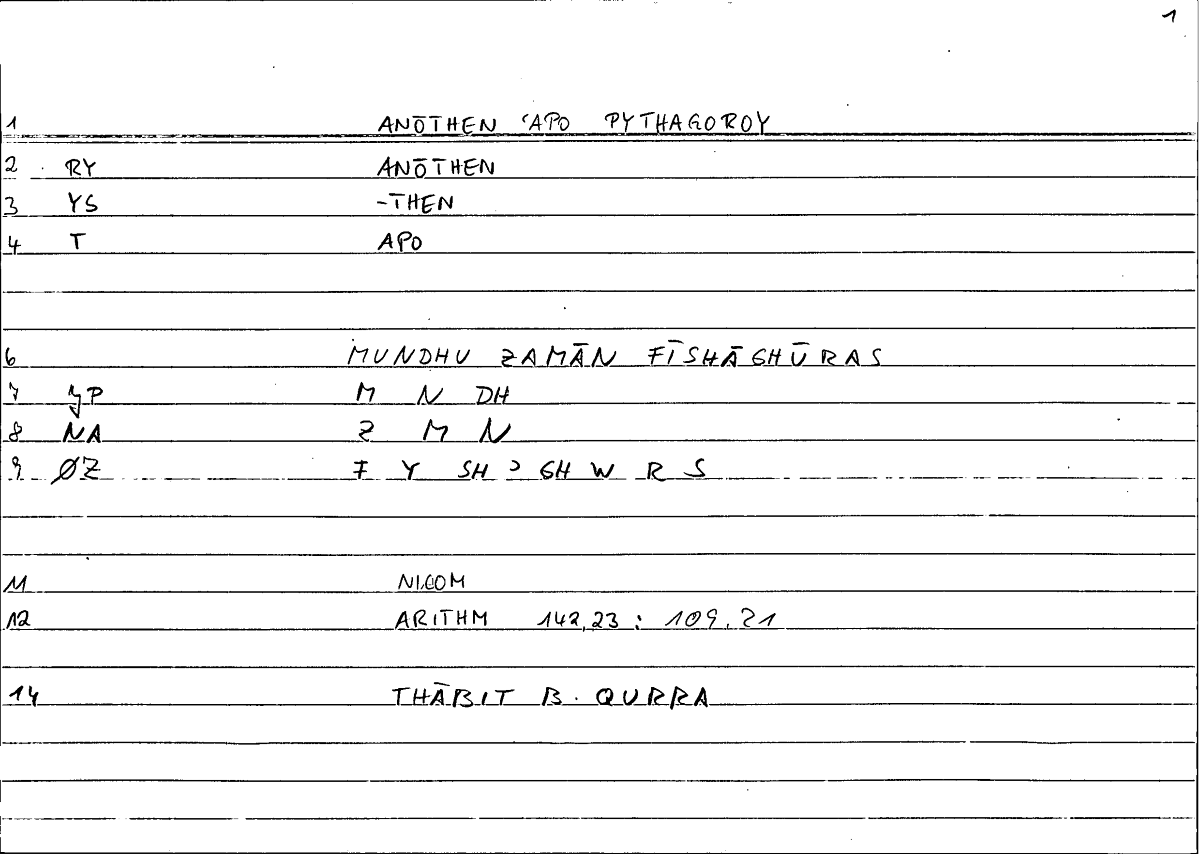 1
1 ANŌTHEN ʿAPO PYTHAGOROY
2 RY ANŌTHEN
3 YS -THEN
4 T APO
6 MUNDHU ZAMĀN FĪSHĀGHŪRAS
7 YP M N DH
8 NA Z M N
9 ØZ F Y SH ʾ GH W R S
11 NICOM
12 ARITHM 142,23 : 109.21
14 THĀBIT B. QURRA